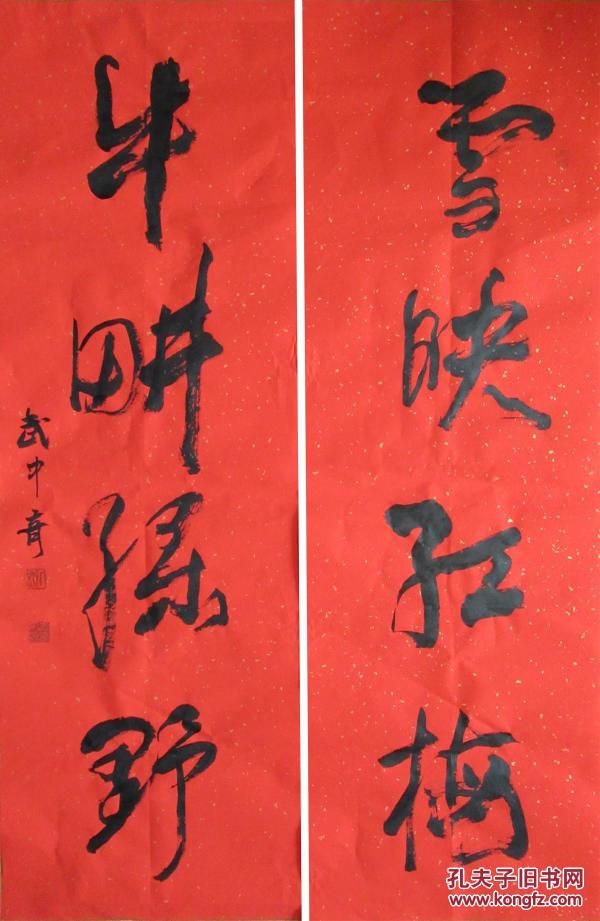 雪映红梅
牛畊绿野
武中奇
孔夫子旧书网
www.kongfz.com